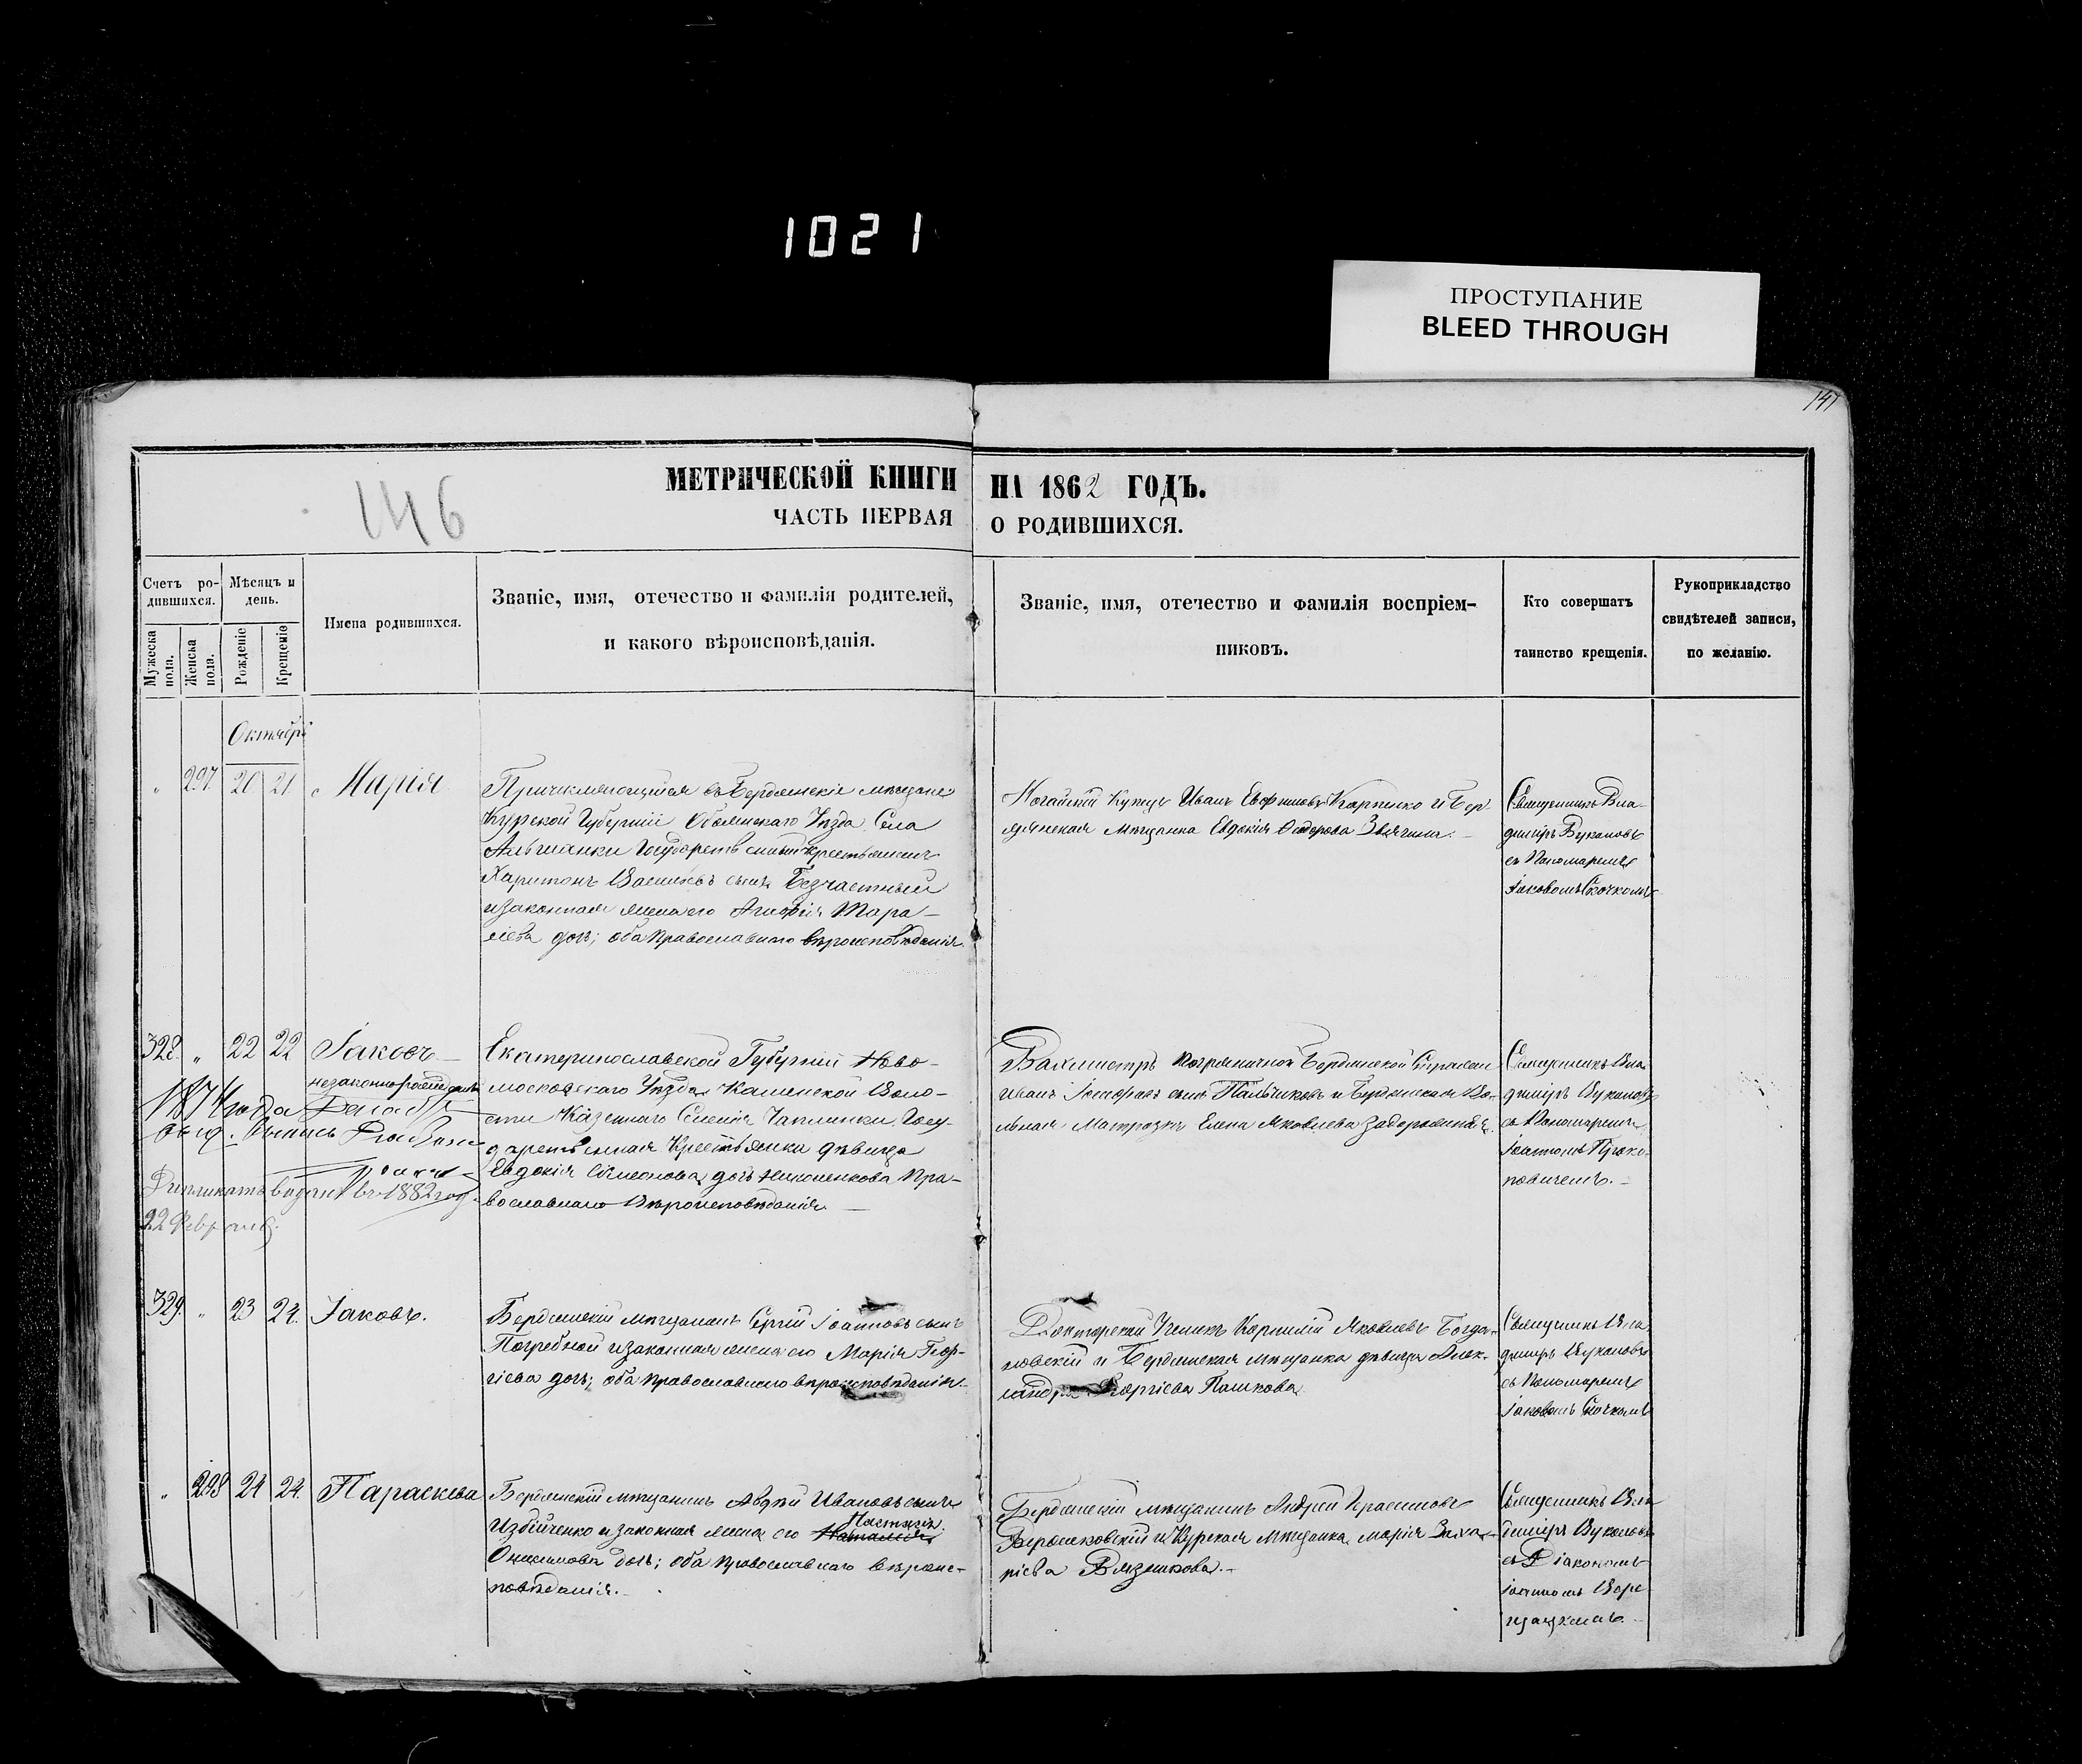 1021
ПРОСТУПАНИЕ
BLEED THROUGH
141
146
МЕТРИЧЕСКОЙ КНИГИ НА 1862 ГОДЪ.
ЧАСТЬ ПЕРВАЯ О РОДИВШИХСЯ.
Счетъ ро-
дившихся.
Мужеска пола.
Женска пола.
Мѣсяцъ и
день.
Рожденіе
Крещеніе
Имена родившихся.
Званіе, имя, отечество и фамилія родителей,
и какого вѣроисповѣданія.
Званіе, имя, отечество и фамилія воспріем-
никовъ.
Кто совершатъ
таинство крещенія.
Рукоприкладство
свидѣтелей записи,
по желанію.
Октябрь
" 297 20 21 Марія
Причисляющійся въ Бердянскіе мѣщане
Курской Губерніи Обоянскаго Уѣзда Села
Государственный крестьянинъ
Харитонъ Васильевъ сынъ Безчастный
и законная жена его Тара-
сіева дочь; оба Православнаго вѣроисповѣданія.
Ногайскій Купецъ Иванъ Евфимовъ Карпенко и Бер-
дянская Мѣщанка Евдокія Звягина.
Священникъ Вла-
диміръ Вуколовъ
съ Пономаремъ
Іаковомъ
328. " 22 22 Іаковъ
незаконнорожденный
1874 года
Дупликатъ выданъ въ 1882 году
22 Февраля
Екатеринославской Губерніи Ново-
московскаго Уѣзда Каменской Воло-
сти Казеннаго Селенія Чаплинки Госу-
дарственная Крестьянка дѣвица
Евдокія Симеонова дочь Николенкова Пра-
вославнаго Вѣроисповѣданія.
Вахмистръ Пограничной Бердянской Стражи
Иванъ сынъ Пальчиковъ и Бердянская Во-
льная Матрозка Елена Яковлева Задорожная.
Священникъ Вла-
диміръ Вуколовъ
съ Пономаремъ
Іоанномъ Проко-
повичемъ.
329. " 23 24. Іаковъ.
Бердянскій мѣщанинъ Сергій Іоанновъ сынъ
Погребной и законная жена его Марія Геор-
гіева дочь; оба Православнаго вѣроисповѣданія.
Докторскій Ученикъ Корнилій Яковлевъ Богда-
новскій и Бердянская мѣщанка дѣвица Алек-
сандра Георгіева Пашкова.
Священникъ Вла-
диміръ Вуколовъ
съ Пономаремъ
Іаковомъ
" 298 24 24. Параскева
Бердянскій мѣщанинъ Авдѣй Ивановъ сынъ
Избійченко и законная жена его Наталія
Настасія
Онисимова дочь; оба Православнаго вѣроис-
повѣданія.
Бердянскій мѣщанинъ Андрей Герасимовъ
и Курская Мѣщанка Марія Заха-
ріева Вязникова.
Священникъ Вла-
диміръ Вуколовъ
съ Діакономъ
Іоанномъ